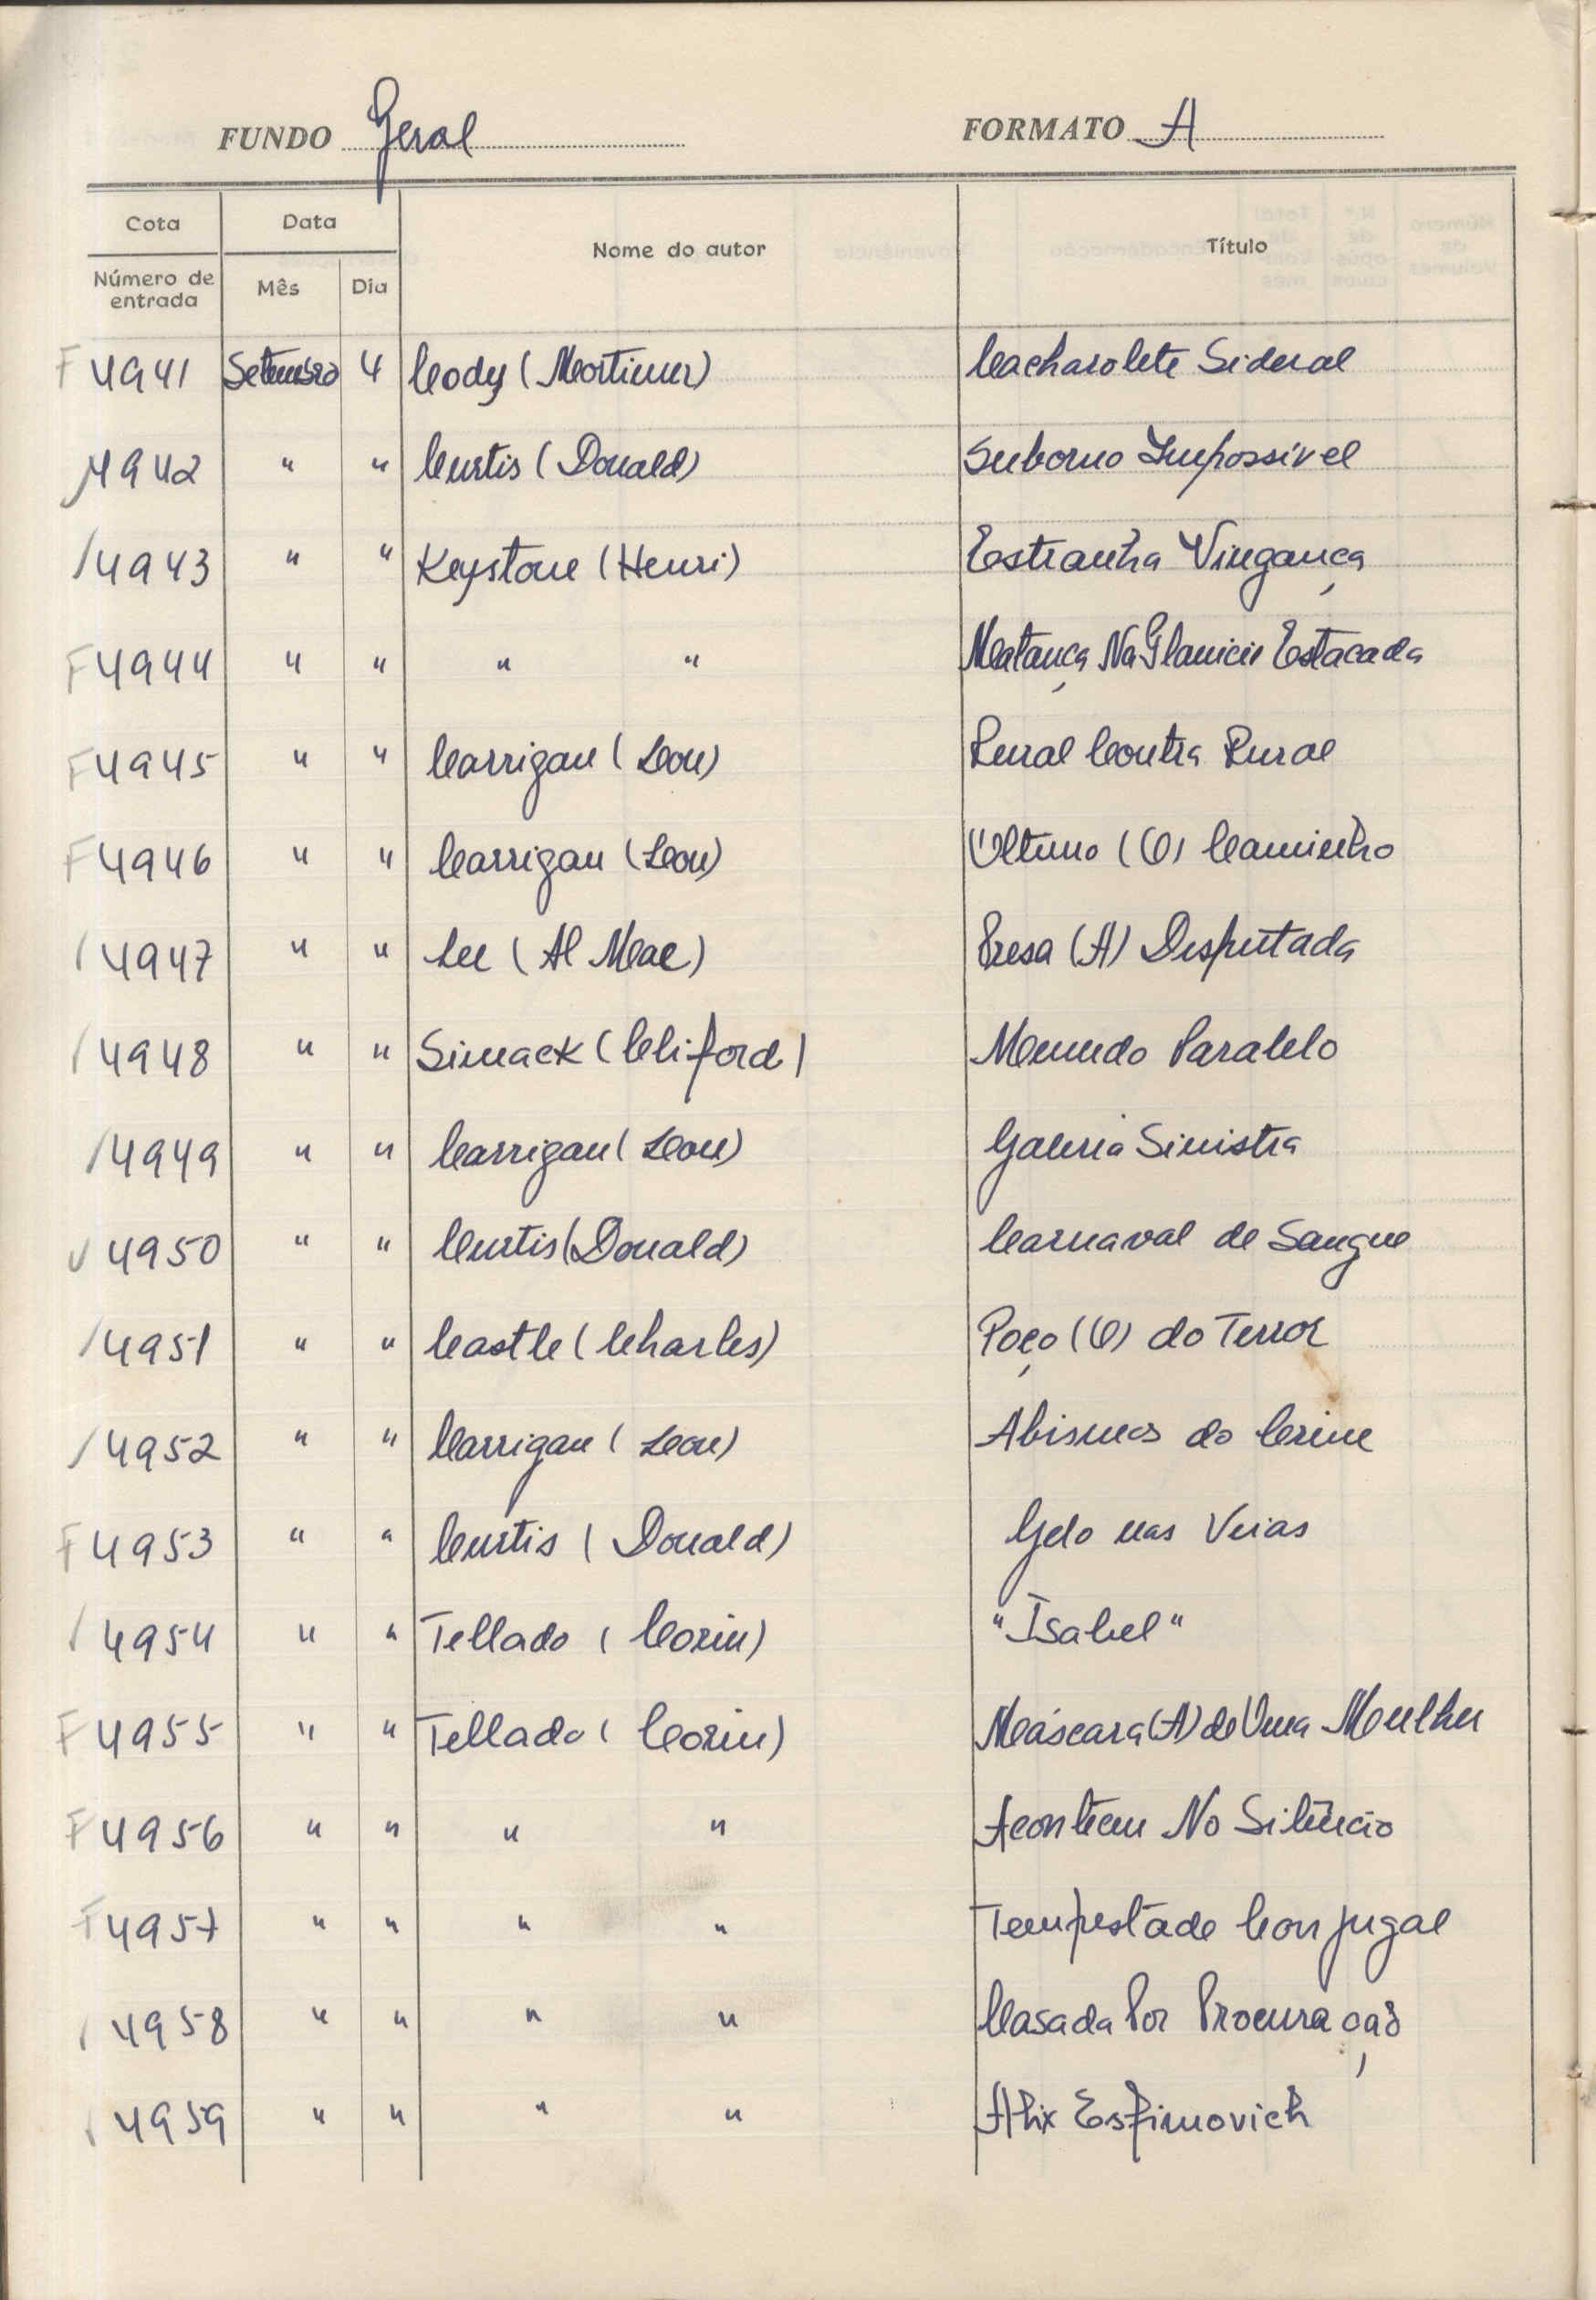 FUNDO Geral FORMATO A
Cota Data Nome do autor Título
Número de entrada Mês Dia
F 4941 Setembro 4 Cody (Mortimer) Cacharolete Sideral
4942 " " Curtis (Donald) Suborno Impossível
/ 4943 " " Keystone (Henri) Estranha Vingança
F 4944 " " " " Matança Na Planicie Estacada
F 4945 " " Carrigan (Leon) Rural Contra Rural
F 4946 " " Carrigan (Leon) Último (O) Caminho
/ 4947 " " Lee (Al Mac) Presa (A) Disputada
/ 4948 " " Simack (Cliford) Mundo Paralelo
/ 4949 " " Carrigan (Leon) Galeria Sinistra
✓ 4950 " " Curtis (Donald) Carnaval de Sangue
/ 4951 " " Castle (Charles) Poço (O) do Terror
/ 4952 " " Carrigan (Leon) Abismos do Crime
F 4953 " " Curtis (Donald) Gelo nas Veias
/ 4954 " " Tellado (Corin) "Isabel"
F 4955 " " Tellado (Corin) Máscara (A) de Uma Mulher
F 4956 " " " " Aconteceu No Silêncio
F 4957 " " " " Tempestade Conjugal
/ 4958 " " " " Casada Por Procuração
/ 4959 " " " "